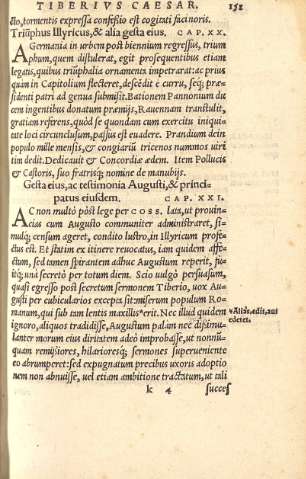 TIBERIVS CAESAR. 152
cto, tormentis expressa confessio est cogitati facinoris.
Triũphus Illyricus, & alia gesta eius. CAP. XX.
A Germania in urbem post biennium regressus, trium
phum, quem distulerat, egit prosequentibus etiam
legatis, quibus triũphalia ornamenta impetrarat: ac prius
quàm in Capitolium flecteret, descẽdit è curru, seq́; præ-
sidenti patri ad genua submisit. Bationem Pannonium du
cem ingentibus donatum præmijs, Rauennam transtulit,
gratiam referens, quòd se quondam cum exercitu iniqui-
tate loci circunclusum, passus est euadere. Prandium dein
populo mille mensis, & congiariũ tricenos nummos uiri
tim dedit. Dedicauit & Concordiæ ædem. Item Pollucis
& Castoris, suo fratrisq́; nomine de manubijs.
Gesta eius, ac testimonia Augusti, & princi-
patus eiusdem. CAP. XXI.
AC non multò pòst lege per COSS. lata, ut prouin-
cias cum Augusto communiter administraret, si-
mulq́; censum ageret, condito lustro, in Illyricum profe-
ctus est. Et statim ex itinere reuocatus, iam quidem affe-
ctum, sed tamen spirantem adhuc Augustum reperit, fu-
itq́; unà secretò per totum diem. Scio uulgò persuasum,
quasi egresso post secretum sermonem Tiberio, uox Au-
gusti per cubicularios excepta sit: miserum populum Ro-
manum, qui sub tam lentis maxillis* erit. Nec illud quidem
ignoro, aliquos tradidisse, Augustum palàm nec dißimu-
lanter morum eius diritatem adeò improbasse, ut nonnũ-
quam remißiores, hilarioresq́; sermones superueniente
eo abrumperet: sed expugnatum precibus uxoris adoptio
nem non abnuisse, uel etiam ambitione tractatum, ut tali
k 4 succes